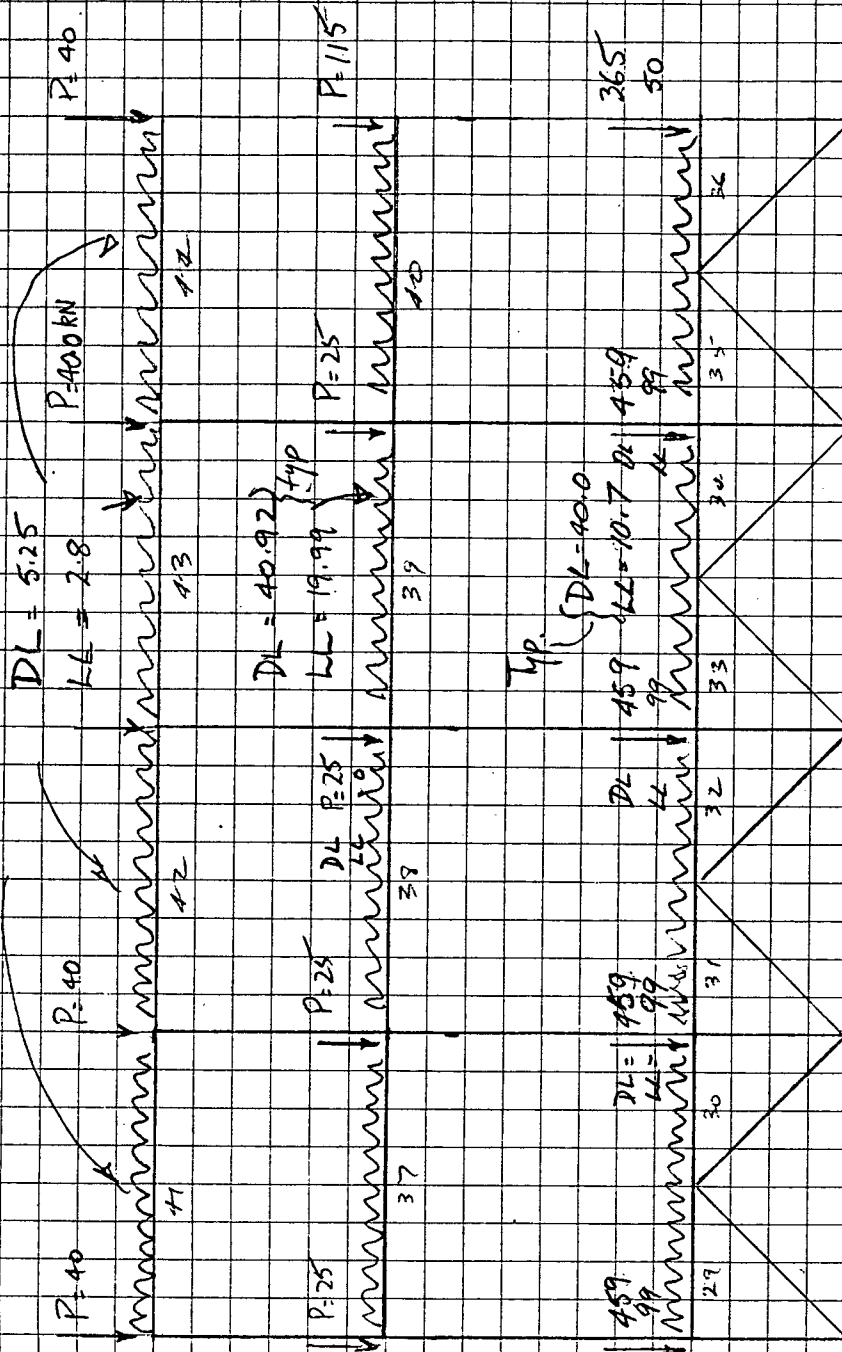 DL = 5.25
LL = 2.8
P=40
P=40
P=40.0kN
P=40
41
42
43
44
DL = 40.92 } typ
LL = 19.99
P=25
P=25
DL P=25
LL 0
P=25
P=115
37
38
39
40
Typ. { DL=40.0
LL=10.7
459
99
DL = 459
LL = 99
DL 459
LL 99
DL 459
LL 99
365
50
29
30
31
32
33
34
35
36